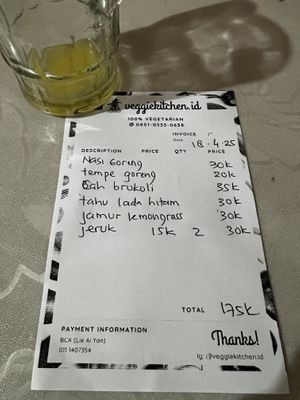 veggiekitchen.id
100% VEGETARIAN
0851-0333-0638
INVOICE
Date 18.4.25
DESCRIPTION PRICE QTY PRICE
Nasi Goreng 30k
tempe goreng 20k
Cah brokoli 35k
tahu lada hitam 30k
jamur lemongrass 30k
jeruk 15k 2 30k
TOTAL 175k
PAYMENT INFORMATION
BCA (Lie Ai Yan)
011 1407354
Thanks!
ig: @veggiekitchen.id